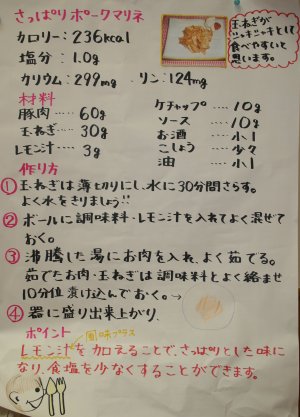 さっぱりポークマリネ
カロリー：236kcal
塩分：1.0g
カリウム：299mg　リン：124mg
玉ねぎが
シャキシャキとして
食べやすいと
思います。
材料
豚肉……60g
玉ねぎ……30g
レモン汁……3g
ケチャップ……10g
ソース……10g
お酒……小1
こしょう……少々
油……小1
作り方
①玉ねぎは薄切りにし、水に30分間さらす。
よく水をきりましょう!!
②ボールに調味料・レモン汁を入れてよく混ぜて
おく。
③沸騰した湯にお肉を入れ、よく茹でる。
茹でたお肉・玉ねぎは調味料とよく絡ませ
10分位漬け込んでおく。→
④器に盛り出来上がり。
ポイント
風味プラス
レモン汁を加えることで、さっぱりとした味に
なり、食塩を少なくすることができます。